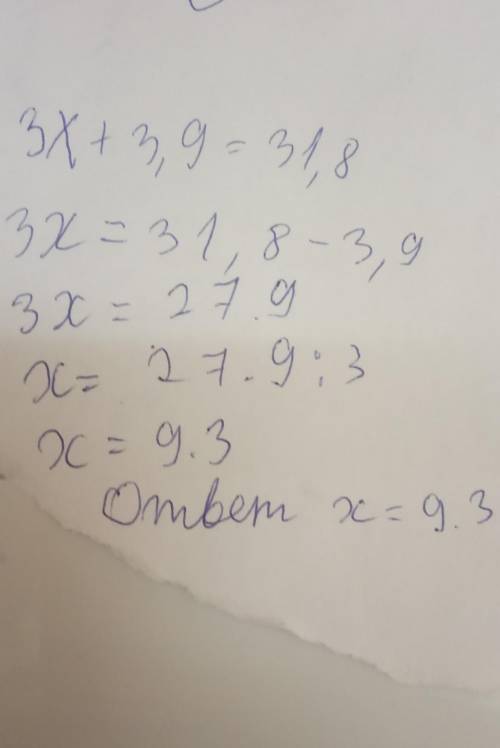 3x + 3,9 = 31,8
3x = 31,8 - 3,9
3x = 27.9
x = 27.9 : 3
x = 9.3
Ответ x = 9.3